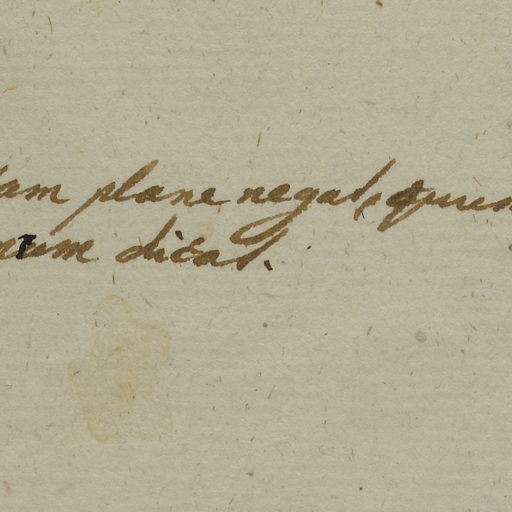 iam plane negat, quum
rum dicat.